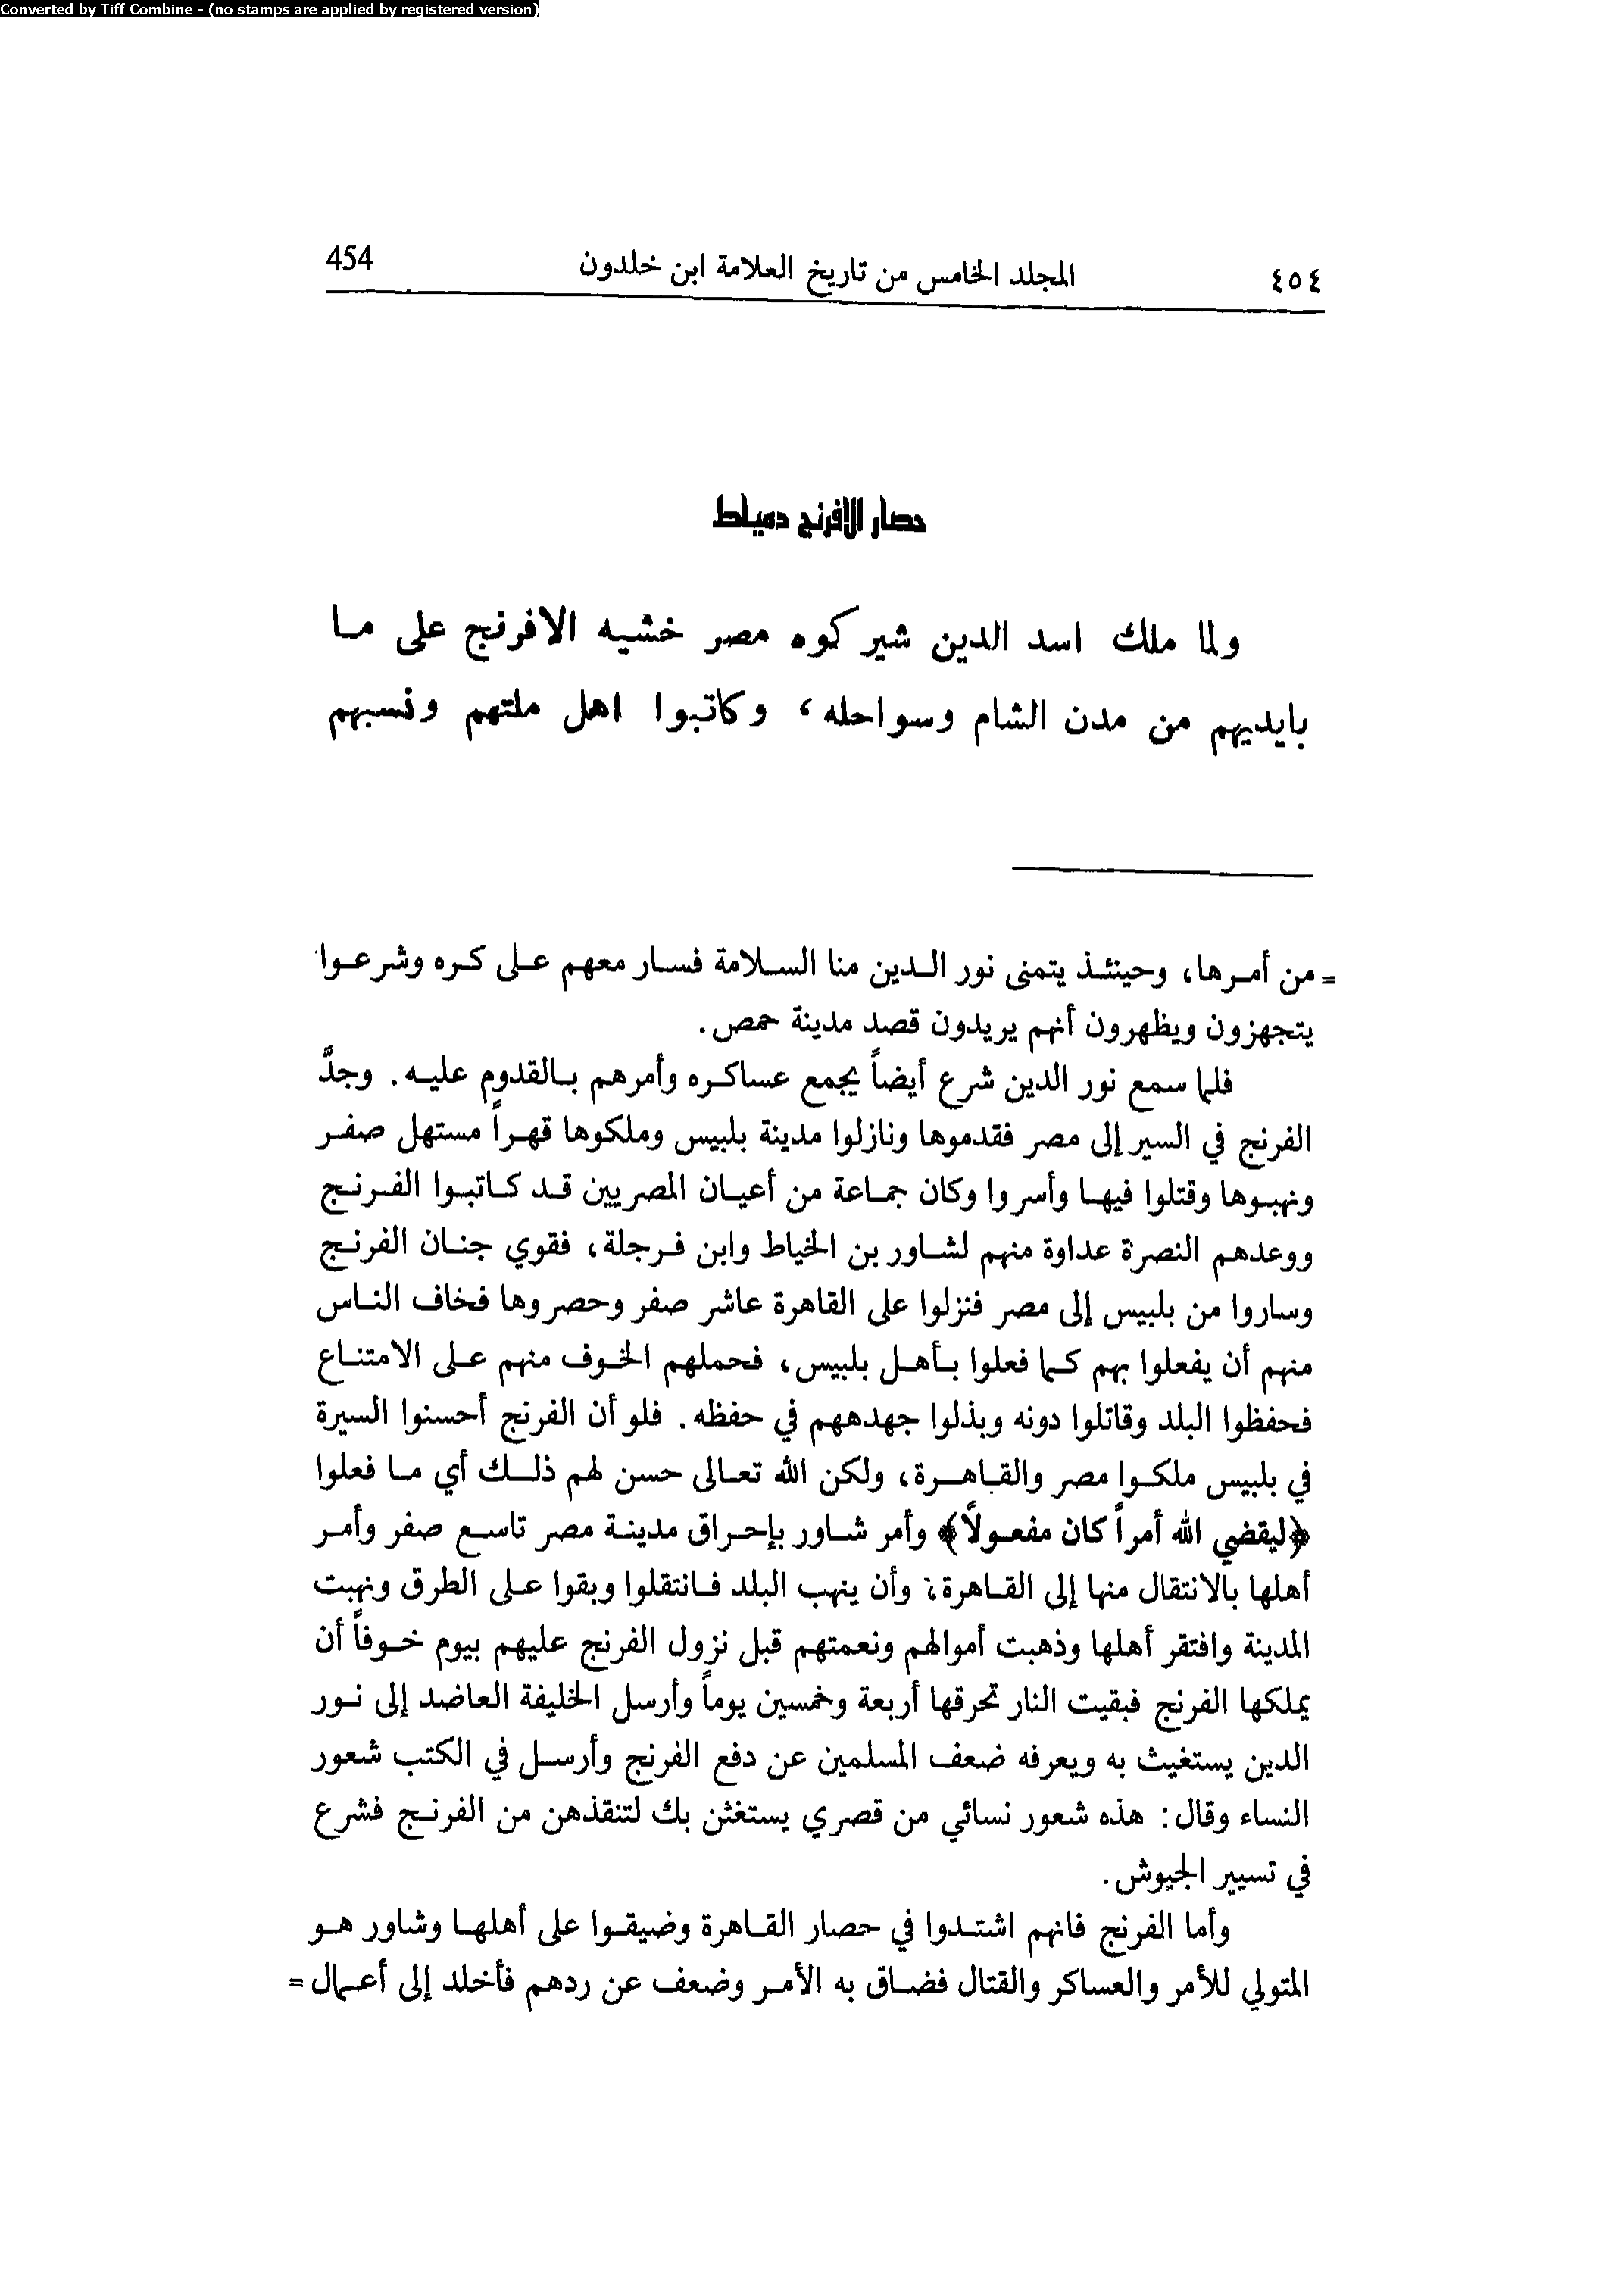 Converted by Tiff Combine - (no stamps are applied by registered version)
٤٥٤ المجلد الخامس من تاريخ العلامة ابن خلدون 454
حصار الافرنج دمياط
ولما ملك اسد الدين شير كوه مصر خشيه الافرنج على ما
بايديهم من مدن الشام وسواحله، وكاتبوا اهل ملتهم ونسبهم
= من أمرها، وحينئذ يتمنى نور الدين منا السلامة فسار معهم على كره وشرعوا
يتجهزون ويظهرون أنهم يريدون قصد مدينة حمص.
فلما سمع نور الدين شرع أيضاً يجمع عساكره وأمرهم بالقدوم عليه. وجدَّ
الفرنج في السير إلى مصر فقدموها ونازلوا مدينة بلبيس وملكوها قهراً مستهل صفر
ونهبوها وقتلوا فيها وأسروا وكان جماعة من أعيان المصريين قد كاتبوا الفرنج
ووعدهم النصرة عداوة منهم لشاور بن الخياط وابن فرجلة، فقوي جنان الفرنج
وساروا من بلبيس إلى مصر فنزلوا على القاهرة عاشر صفر وحصروها فخاف الناس
منهم أن يفعلوا بهم كما فعلوا بأهل بلبيس، فحملهم الخوف منهم على الامتناع
فحفظوا البلد وقاتلوا دونه وبذلوا جهدههم في حفظه. فلو أن الفرنج أحسنوا السيرة
في بلبيس ملكوا مصر والقاهرة، ولكن الله تعالى حسن لهم ذلك أي ما فعلوا
﴿ليقضي الله أمراً كان مفعولاً﴾ وأمر شاور بإحراق مدينة مصر تاسع صفر وأمر
أهلها بالانتقال منها إلى القاهرة؛ وأن ينهب البلد فانتقلوا وبقوا على الطرق ونهبت
المدينة وافتقر أهلها وذهبت أموالهم ونعمتهم قبل نزول الفرنج عليهم بيوم خوفاً أن
يملكها الفرنج فبقيت النار تحرقها أربعة وخمسين يوماً وأرسل الخليفة العاضد إلى نور
الدين يستغيث به ويعرفه ضعف المسلمين عن دفع الفرنج وأرسل في الكتب شعور
النساء وقال: هذه شعور نسائي من قصري يستغثن بك لتنقذهن من الفرنج فشرع
في تسيير الجيوش.
وأما الفرنج فانهم اشتدوا في حصار القاهرة وضيقوا على أهلها وشاور هو
المتولي للأمر والعساكر والقتال فضاق به الأمر وضعف عن ردهم فأخلد إلى أعمال =